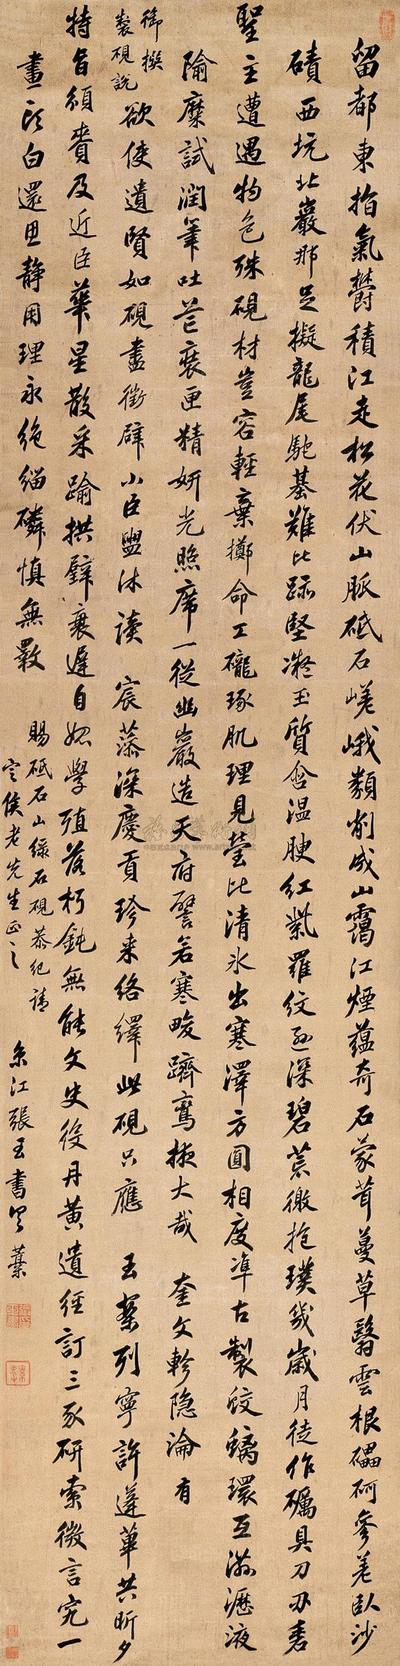 留都東指氣欝積江走松花伏山脈砥石嵯峨類削成山靄江煙蘊奇石蒙茸蔓草翳雲根礧砢參差臥沙
磧西坑北巖那足擬龍尾馳基難比跡堅凝玉質含温腴紅紫羅紋深碧荒徼抱璞幾歲月徒作礪具刀刃
聖主遭遇物色殊硯材豈容輕棄擲命工礲琢肌理見瑩比清氷出寒澤方圓相度準古製蛟螭環互滋瀝液
隃糜試潤筆吐芒裝匣精妍光照席一從幽巖造天府譬若寒畯躋鸞掖大哉 奎文軫隐淪有
御撰
製硯說
欲使遺賢如硯盡徵辟小臣盥沐讀 宸藻深慶貢珍来絡繹此硯只應 玉案列寧許蓬蓽共昕夕
特旨頒賚及近臣華星散采踰拱璧衰遲自媿學殖落朽鈍無能文史役丹黄遺經訂三豕研索微言究一
畫頭白還思静用理永絶緇磷慎無斁
賜砥石山緑石硯恭紀請
定侯老先生正之
京江張玉書呈藁